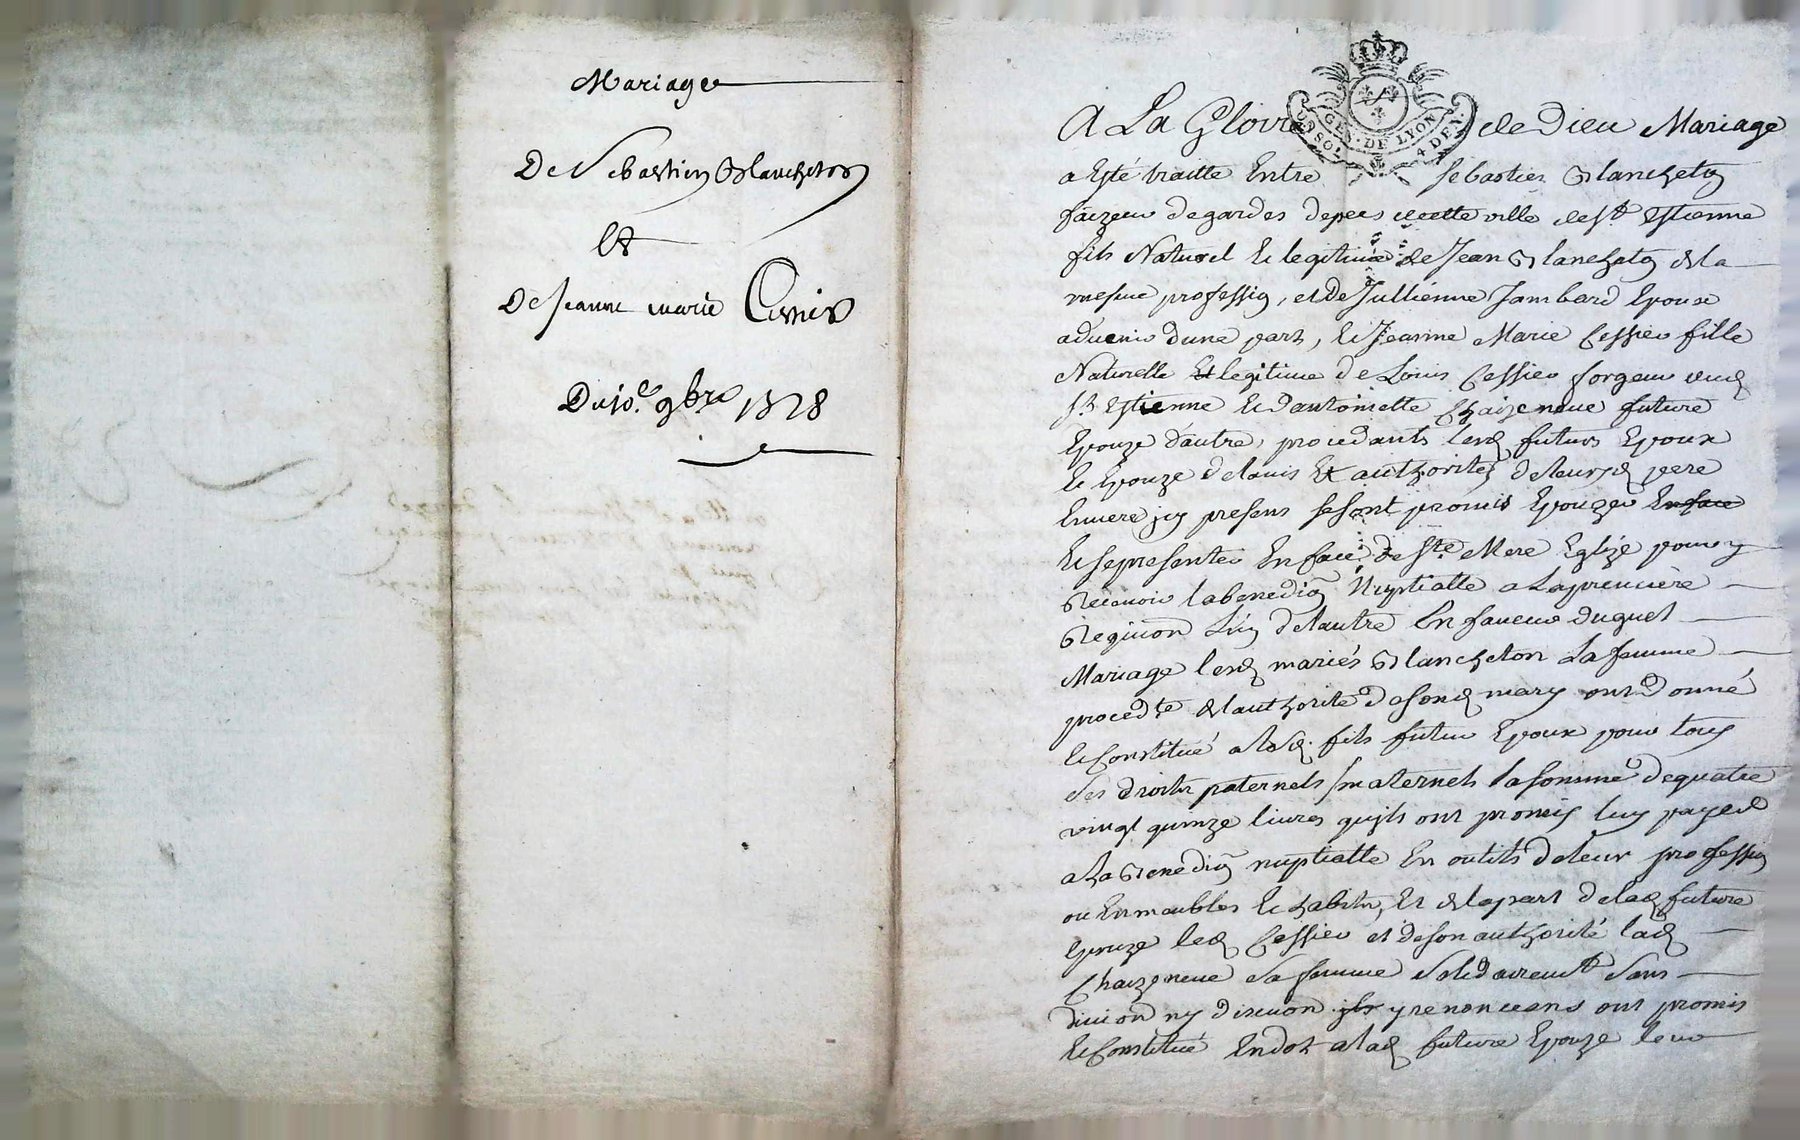 Mariage
De Sebastien Blancheton
Et
De Jeanne marie Cessier
Du 10.e 9bre 1728
GEN. DE LYON
4 DEN.
A La Gloire de Dieu Mariage
a Esté traitte Entre Sebastien Blancheton
faizeur de gardes depees de cette ville de St. Estienne
fils Naturel Et legitime de Jean Blancheton de la
mesme profession, et de Jullienne Jambard Epoux
advenir dune part, Et Jeanne Marie Cessier fille
Naturelle Et legitime de Louis Cessier forgeur dud
St Estienne Et dantoinette Chaizeneue future
Epouze dautre, procedants lesd futurs Epoux
Et Epouze delauis Et authorités de leursd pere
Et mere jcy presens se sont promis Epouzer En face
Et se presenter En face de Ste Mere Eglize pour y
Receuoir la benedion Nuptialle a La premiere
Requion Lun delautre En faueur duquel
Mariage lesd mariés Blancheton La femme
procedte de lauthorité de sond mary ont Donné
Et Constitué aud. fils futur Epoux pour tous
ses droits paternels / maternels la somme de quatre
vingt quinze liures quils ont promis luy payer
a La Benedion nuptialle En outils de leur profession
ou En meubles Et habits, Et de la part de lad future
Epouze led Cessier et de son authorité lad
Chaizeneue sa femme solidairemt sans
diuion ny discuion y renonceans ont promis
Et Constitué En dot a lad future Epouze leur